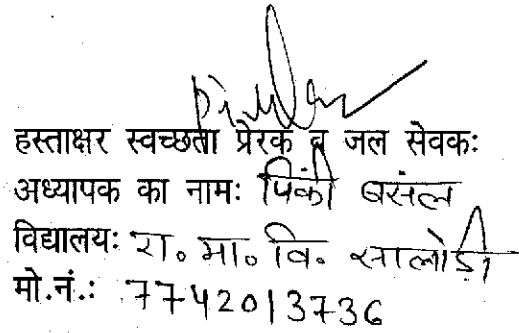 हस्ताक्षर स्वच्छता प्रेरक व जल सेवकः
अध्यापक का नामः पिंकी बसंल
विद्यालयः रा. मा. वि. सालोड़ी
मो.नं.: 7742013736